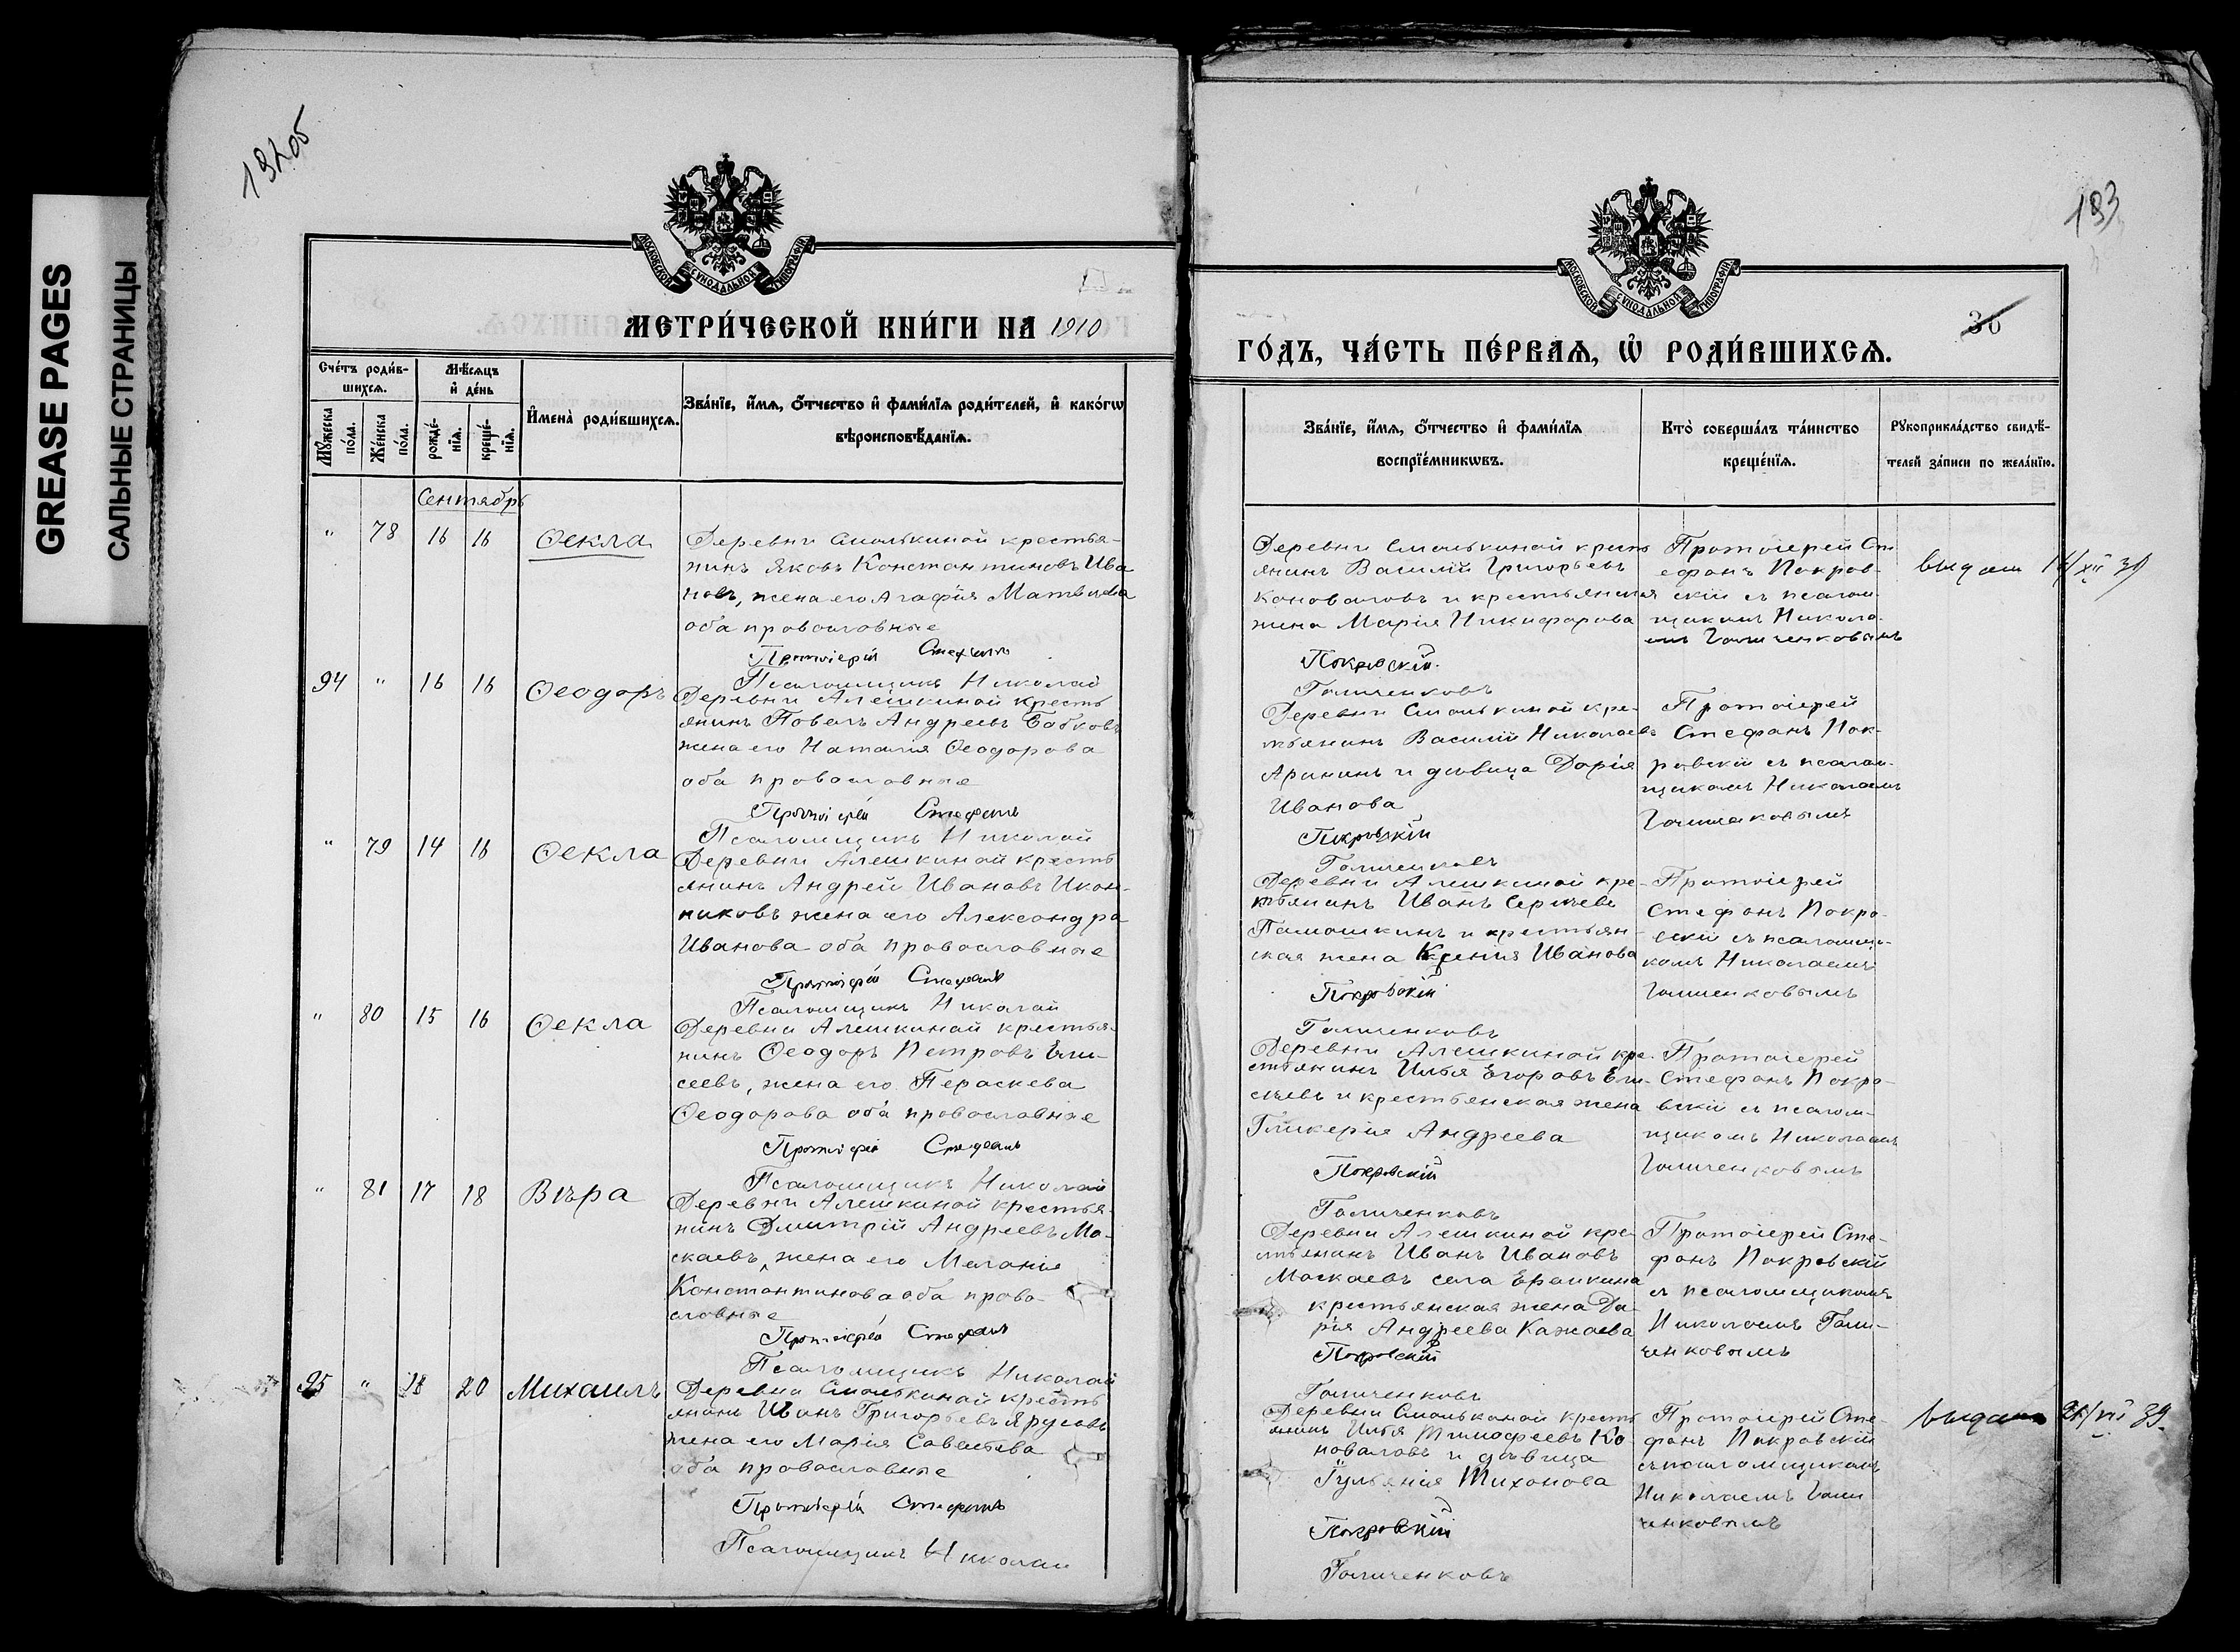 GREASE PAGES
САЛЬНЫЕ СТРАНИЦЫ
192об
МОСКОВСКОЙ СѴНОДАЛЬНОЙ ТИПОГРАФІИ
МЕТРИ́ЧЕСКОЙ КНИ́ГИ НА 1910
Сче́тъ роди́в-
шихсѧ.
Мѣ́сѧцъ
и҆ де́нь
Мꙋ́жеска
по́ла.
Же́нска
по́ла.
рожде́-
нїѧ.
креще́-
нїѧ.
И҆мена̀ роди́вшихсѧ.
Зва́нїе, и҆́мѧ, ѻ҆́тчество и҆ фами́лїѧ роди́телей, и҆ како́гѡ
вѣроисповѣ́данїѧ.
Сентябрь
" 78 16 16 Ѳекла
Деревни Смолькиной крестья-
нинъ Яковъ Константиновъ Ива
новъ, жена его Агафія Матвѣева
оба православные
Протоіерей Стефанъ
Псаломщикъ Николай
94 " 16 16 Ѳеодоръ
Деревни Алешкиной кресть
янинъ Павелъ Андреевъ Бабковъ
жена его Наталія Ѳеодорова
оба православные
Протоіерей Стефанъ
Псаломщикъ Николай
" 79 14 16 Ѳекла
Деревни Алешкиной кресть
янинъ Андрей Ивановъ Икон-
никовъ жена его Александра
Иванова оба православные
Протоіерей Стефанъ
Псаломщикъ Николай
" 80 15 16 Ѳекла
Деревни Алешкиной крестья-
нинъ Ѳеодоръ Петровъ Ели-
сеевъ, жена его Пераскева
Ѳеодорова оба православные
Протоіерей Стефанъ
Псаломщикъ Николай
" 81 17 18 Вѣра
Деревни Алешкиной крестья-
нинъ Дмитрій Андреевъ Мо-
скаевъ, жена его Меланія
Константинова оба право-
славные
Протоіерей Стефанъ
Псаломщикъ Николай
95 " 18 20 Михаилъ
Деревни Смолькиной кресть
янинъ Иванъ Григорьевъ Ярусовъ
жена его Марія Савельева
оба православные
Протоіерей Стефанъ
Псаломщикъ Николай
193
36
МОСКОВСКОЙ СѴНОДАЛЬНОЙ ТИПОГРАФІИ
ГО́ДЪ, ЧА́СТЬ ПЕ́РВАѦ, Ѡ҆ РОДИ́ВШИХСѦ.
Зва́нїе, и҆́мѧ, ѻ҆́тчество и҆ фами́лїѧ
воспрїе́мникѡвъ.
Кто̀ соверша́лъ та́инство
креще́нїѧ.
Рꙋкоприкла́дство свидѣ́-
телей за́писи по жела́нїю.
Деревни Смолькиной крест
янинъ Василій Григорьевъ
Коноваловъ и крестьянская
жена Марія Никифорова
Покровскій
Голиченковъ
Протоіерей Ст
ефанъ Покров-
скій съ псалом-
щикомъ Никола
емъ Голиченковымъ
выдан 14/XII 39
Деревни Смолькиной кре-
стьянинъ Василій Николаевъ
Аринин и дѣвица Дарія
Иванова
Покровскій
Голиченковъ
Протоіерей
Стефанъ Пок-
ровскій съ псалом-
щикомъ Николаемъ
Голиченковымъ
Деревни Алешкиной кре-
стьянинъ Иванъ Сергѣевъ
и крестьян-
ская жена Ксенія Иванова
Покровскій
Голиченковъ
Протоіерей
Стефанъ Покро-
вскій съ псаломщи-
комъ Николаемъ
Голиченковымъ
Деревни Алешкиной кре-
стьянинъ Илья Егоровъ Ели-
сѣевъ и крестьянская жена
Гликерія Андреева
Покровскій
Голиченковъ
Протоіерей
Стефанъ Покро-
вскій съ псалом-
щикомъ Николаемъ
Голиченковымъ
Деревни Алешкиной кре-
стьянинъ Иванъ Ивановъ
Москаевъ села Ерыкина
крестьянская жена Да-
рія Андреева Кажаева
Покровскій
Голиченковъ
Протоіерей Сте-
фанъ Покровскій
съ псаломщикомъ
Николаемъ Голи-
ченковымъ
Деревни Смолькиной кресть
янинъ Илья Тимофеевъ Ко
новаловъ и дѣвица
Іульянія Тихонова
Покровскій
Голиченковъ
Протоіерей Сте-
фанъ Покровскій
съ псаломщикомъ
Николаемъ Голи
ченковымъ
выдана 21/VII 39